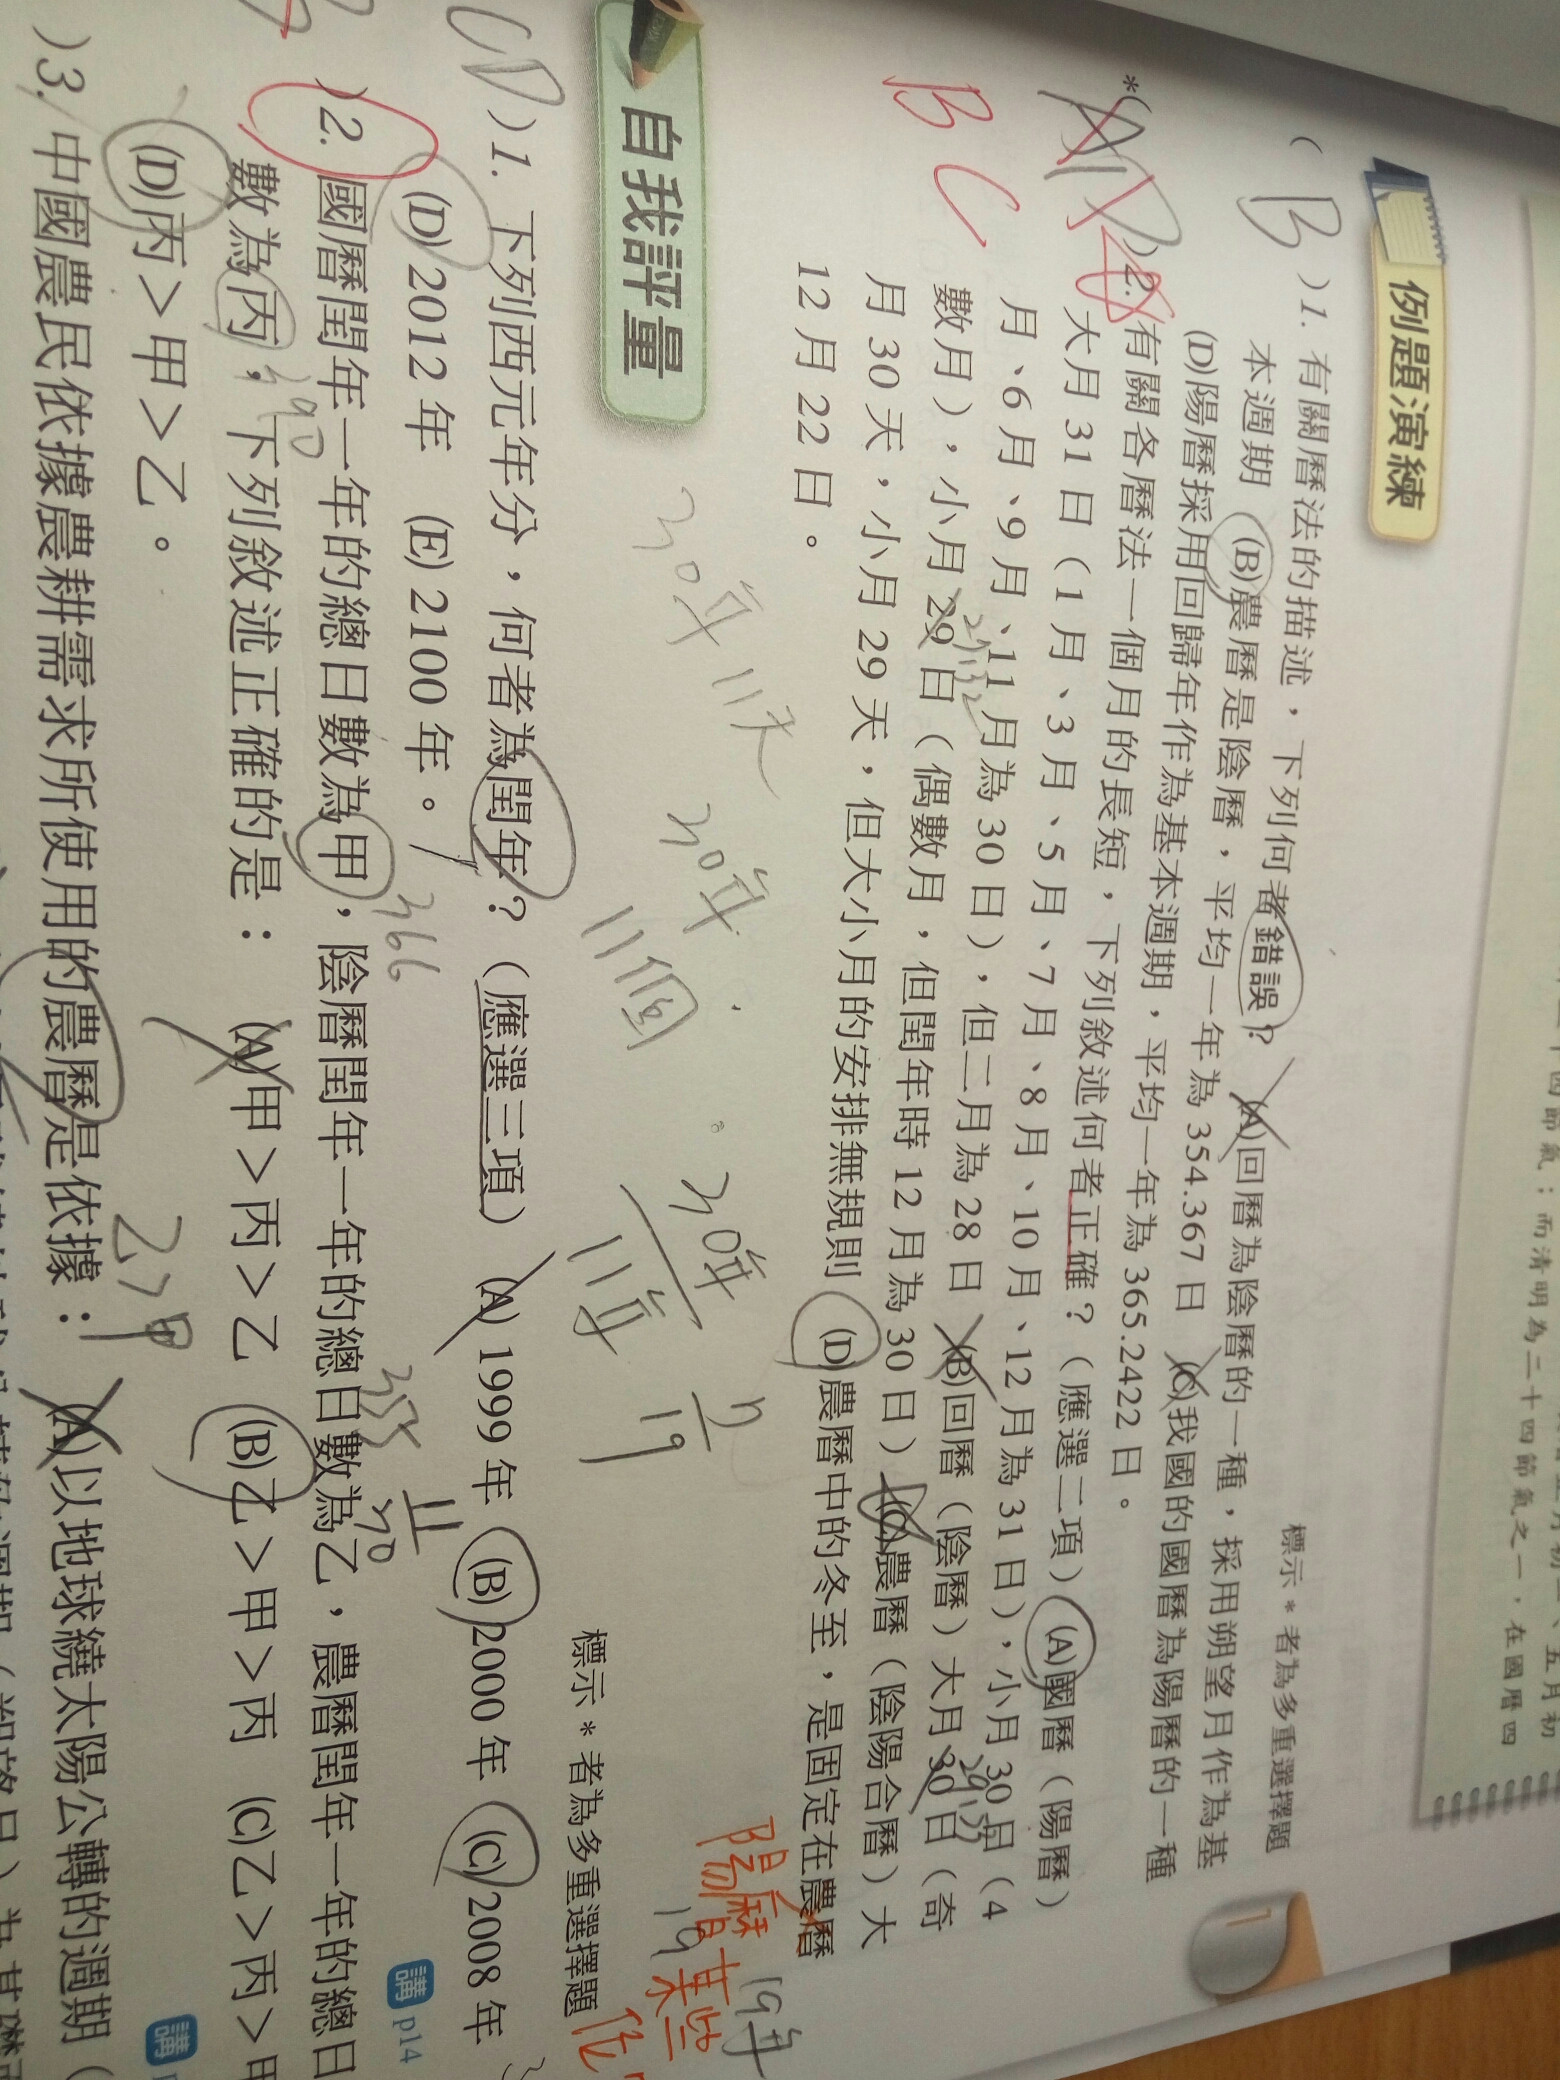 例題演練
標示*者為多重選擇題
(B)1.有關曆法的描述,下列何者錯誤? (A)回曆為陰曆的一種,採用朔望月作為基
本週期 (B)農曆是陰曆,平均一年為354.367日 (C)我國的國曆為陽曆的一種
(D)陽曆採用回歸年作為基本週期,平均一年為365.2422日。
*(AD)2.有關各曆法一個月的長短,下列敘述何者正確?(應選二項) (A)國曆(陽曆)
大月31日(1月、3月、5月、7月、8月、10月、12月為31日),小月30日(4
月、6月、9月、11月為30日),但二月為28日 (B)回曆(陰曆)大月30日(奇
數月),小月29日(偶數月,但閏年時12月為30日) (C)農曆(陰陽合曆)大
月30天,小月29天,但大小月的安排無規則 (D)農曆中的冬至,是固定在農曆
12月22日。
BC
30年11次
30年
11個
30年
11年
7
19
陽曆
某些
19年
自我評量
標示*者為多重選擇題
(D)1.下列西元年分,何者為閏年?(應選三項) (A)1999年 (B)2000年 (C)2008年
(D)2012年 (E)2100年。
講p14
366
355
)2.國曆閏年一年的總日數為甲,陰曆閏年一年的總日數為乙,農曆閏年一年的總日
數為丙,下列敘述正確的是: (A)甲>丙>乙 (B)乙>甲>丙 (C)乙>丙>甲
(D)丙>甲>乙。
講
)3.中國農民依據農耕需求所使用的農曆是依據: (A)以地球繞太陽公轉的週期(